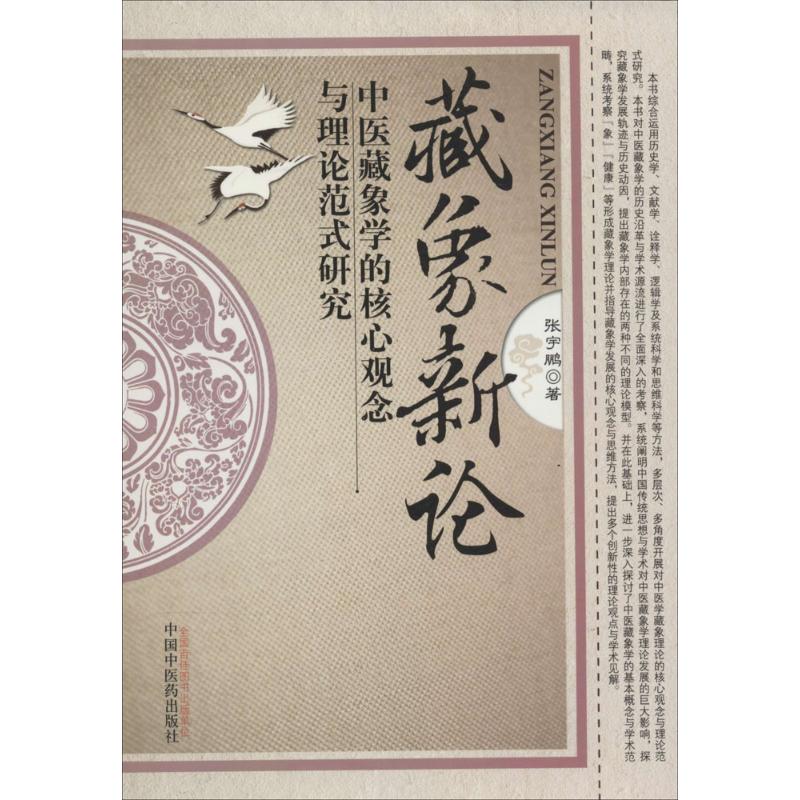 本书综合运用历史学、文献学、诠释学、逻辑学及系统科学和思维科学等方法，多层次、多角度开展对中医学藏象理论的核心观念与理论范
式研究。本书对中医藏象学的历史沿革与学术源流进行了全面深入的考察，系统阐明中国传统思想与学术对中医藏象学理论发展的巨大影响，探
究藏象学发展轨迹与历史动因，提出藏象学内部存在的两种不同的理论模型。并在此基础上，进一步深入探讨了中医藏象学的基本概念与学术范
畴，系统考察「象」「健康」等形成藏象学理论并指导藏象学发展的核心观念与思维方法，提出多个创新性的理论观点与学术见解。
ZANGXIANG XINLUN
张宇鹏◎著
藏象新论
中医藏象学的核心观念
与理论范式研究
全国百佳图书出版单位
中国中医药出版社